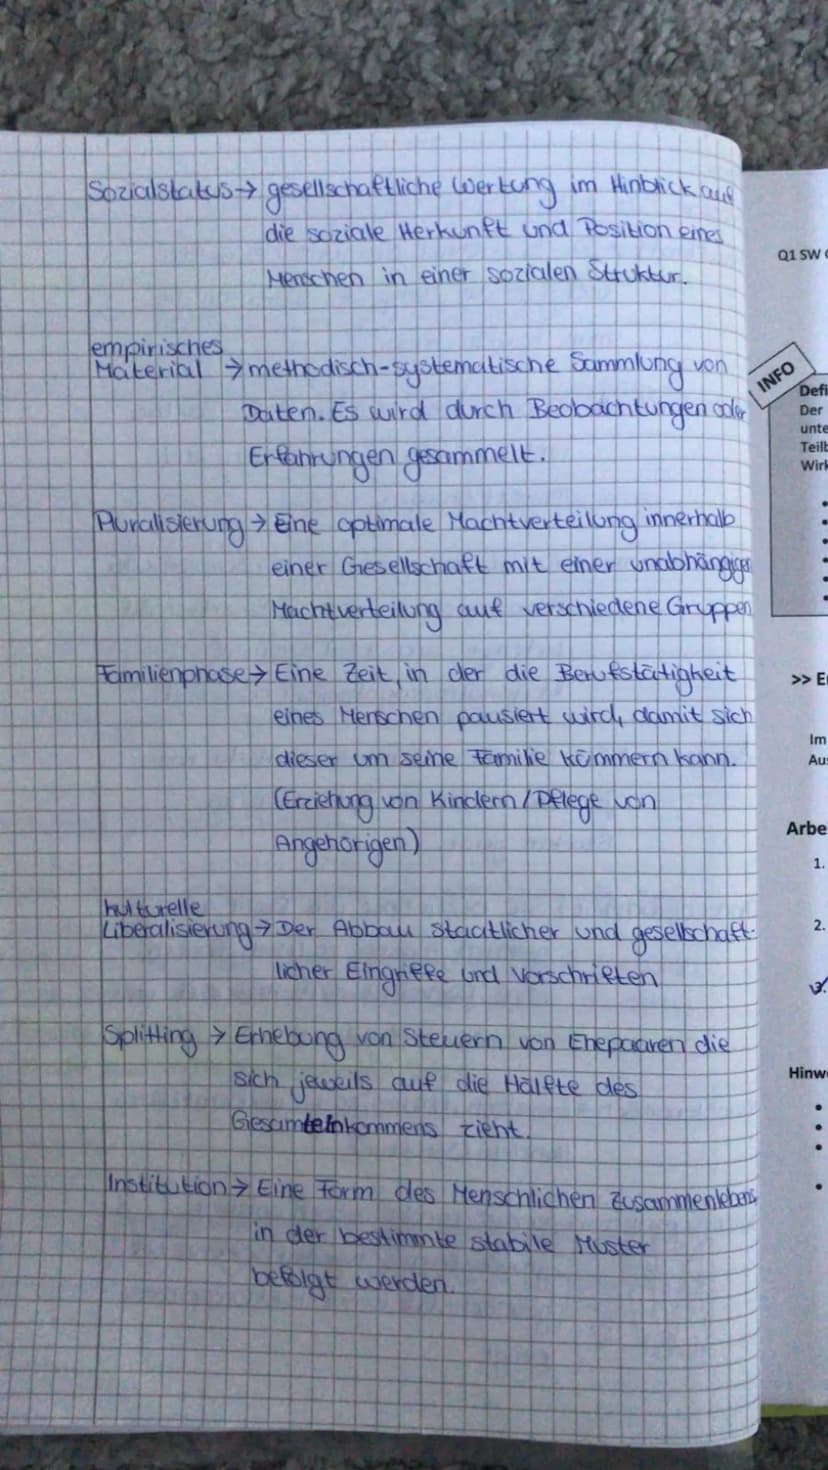 Sozialstatus → gesellschaftliche Wertung im Hinblick auf
die soziale Herkunft und Position eines
Menschen in einer sozialen Struktur.
empirisches
Material → methodisch-systematische Sammlung von
Daten. Es wird durch Beobachtungen oder
Erfahrungen gesammelt.
Pluralisierung → Eine optimale Machtverteilung innerhalb
einer Gesellschaft mit einer unabhängigen
Machtverteilung auf verschiedene Gruppen
Familienphase → Eine Zeit, in der die Berufstätigkeit
eines Menschen pausiert wird, damit sich
dieser um seine Familie kümmern kann.
(Erziehung von Kindern / Pflege von
Angehörigen)
kulturelle
Liberalisierung → Der Abbau staatlicher und gesellschaft-
licher Eingriffe und Vorschriften
Splitting → Erhebung von Steuern von Ehepaaren die
sich jeweils auf die Hälfte des
Gesamteinkommens zieht.
Institution → Eine Form des Menschlichen Zusammenlebens
in der bestimmte stabile Muster
befolgt werden.
Q1 SW
INFO
Defi
Der
unte
Teilb
Wirk
>> E
Im
Aus
Arbe
1.
2.
3.
Hinwe